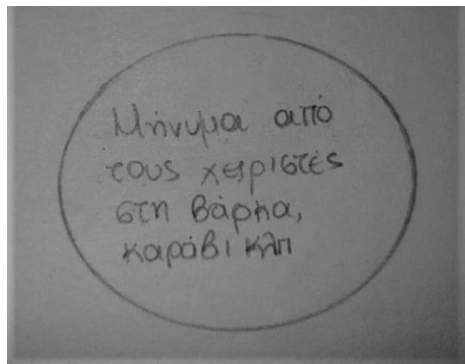 Μήνυμα από
τους χειριστές
στη βάρκα,
καράβι κλπ